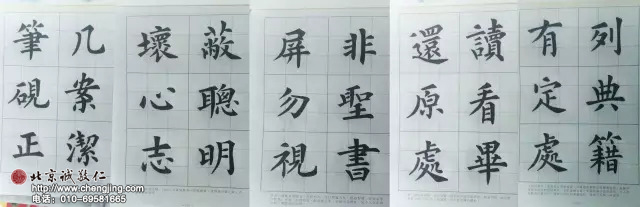 列典籍
有定處
讀看畢
還原處
非聖書
屏勿視
蔽聰明
壞心志
几案潔
筆硯正
北京誠敬仁
http://www.chengjing.com
电话：010-69581665